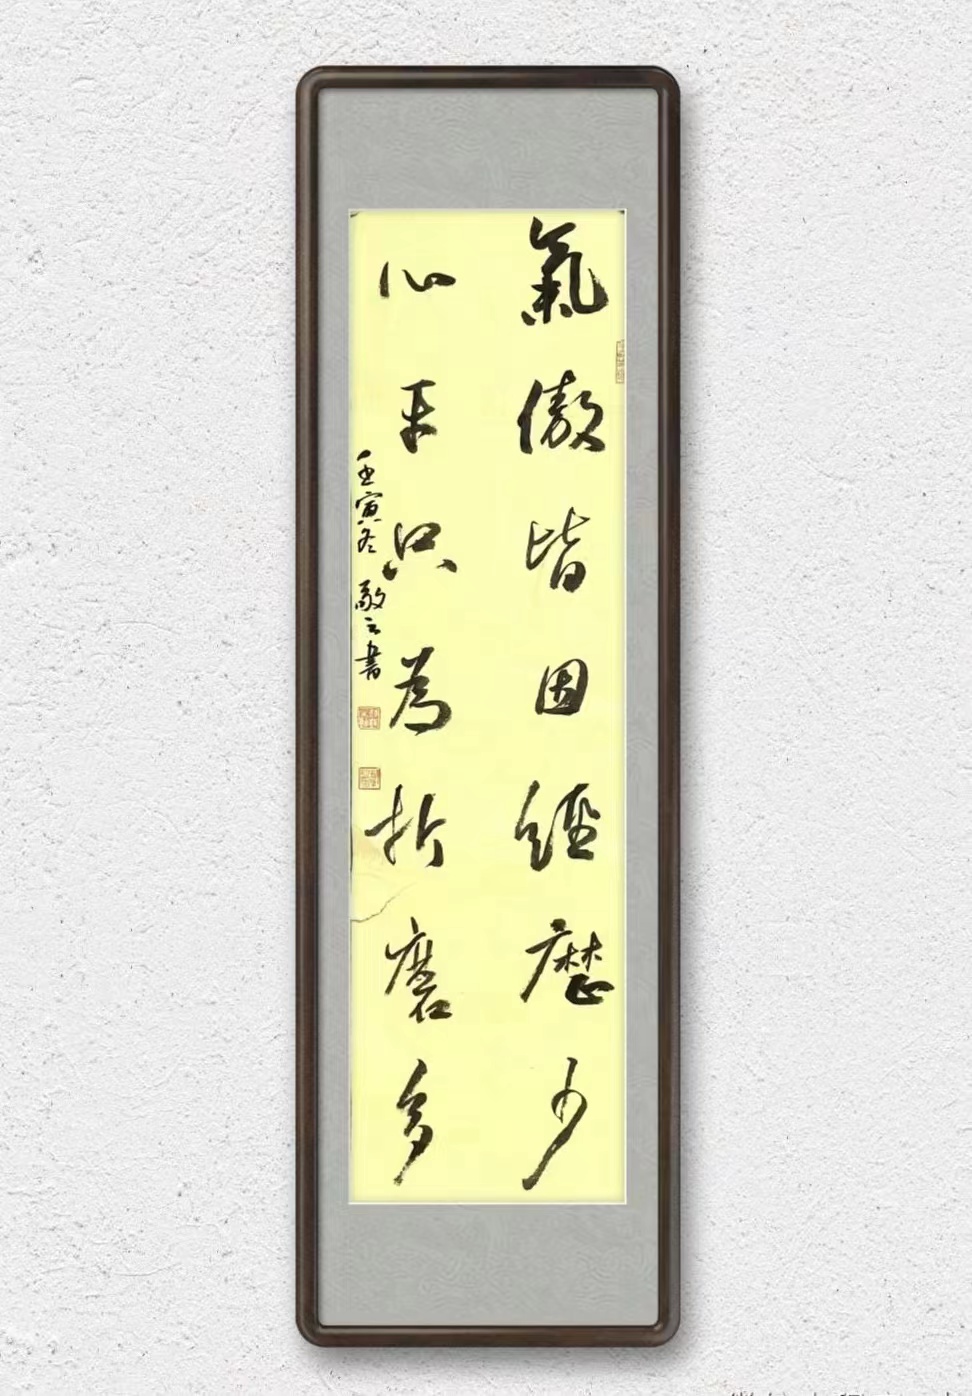 氣傲皆因經歷少
心平只為折磨多
壬寅冬 敬之書